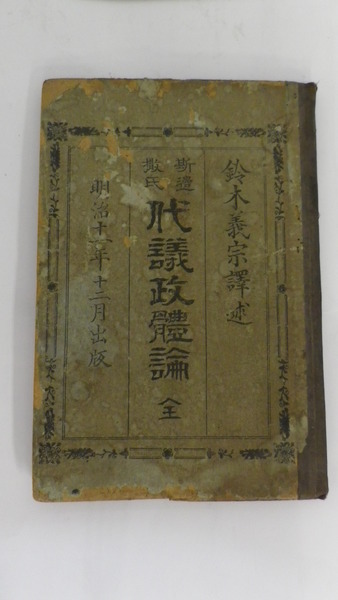 鈴木義宗譯述
斯邊
撒氏
代議政體論 全
明治十一年十二月出版